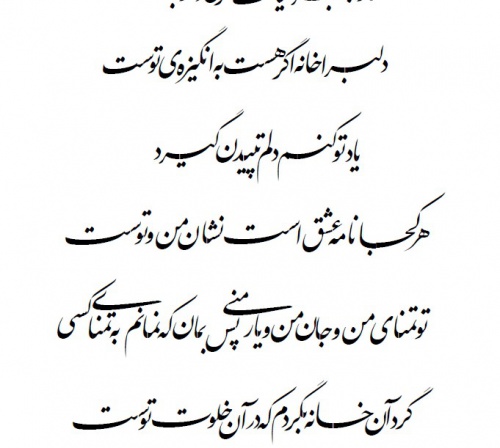 دلبرا خانه اگر هست به انگیزه‌ی توست
یاد تو کنم دلم تپیدن گیرد
هر کجا نامه عشق است نشان من و توست
تو تمنای من و جان من و یار منی پس بمان که نمانم به تمنای کسی
گرد آن خانه بگردم که در آن خلوت توست